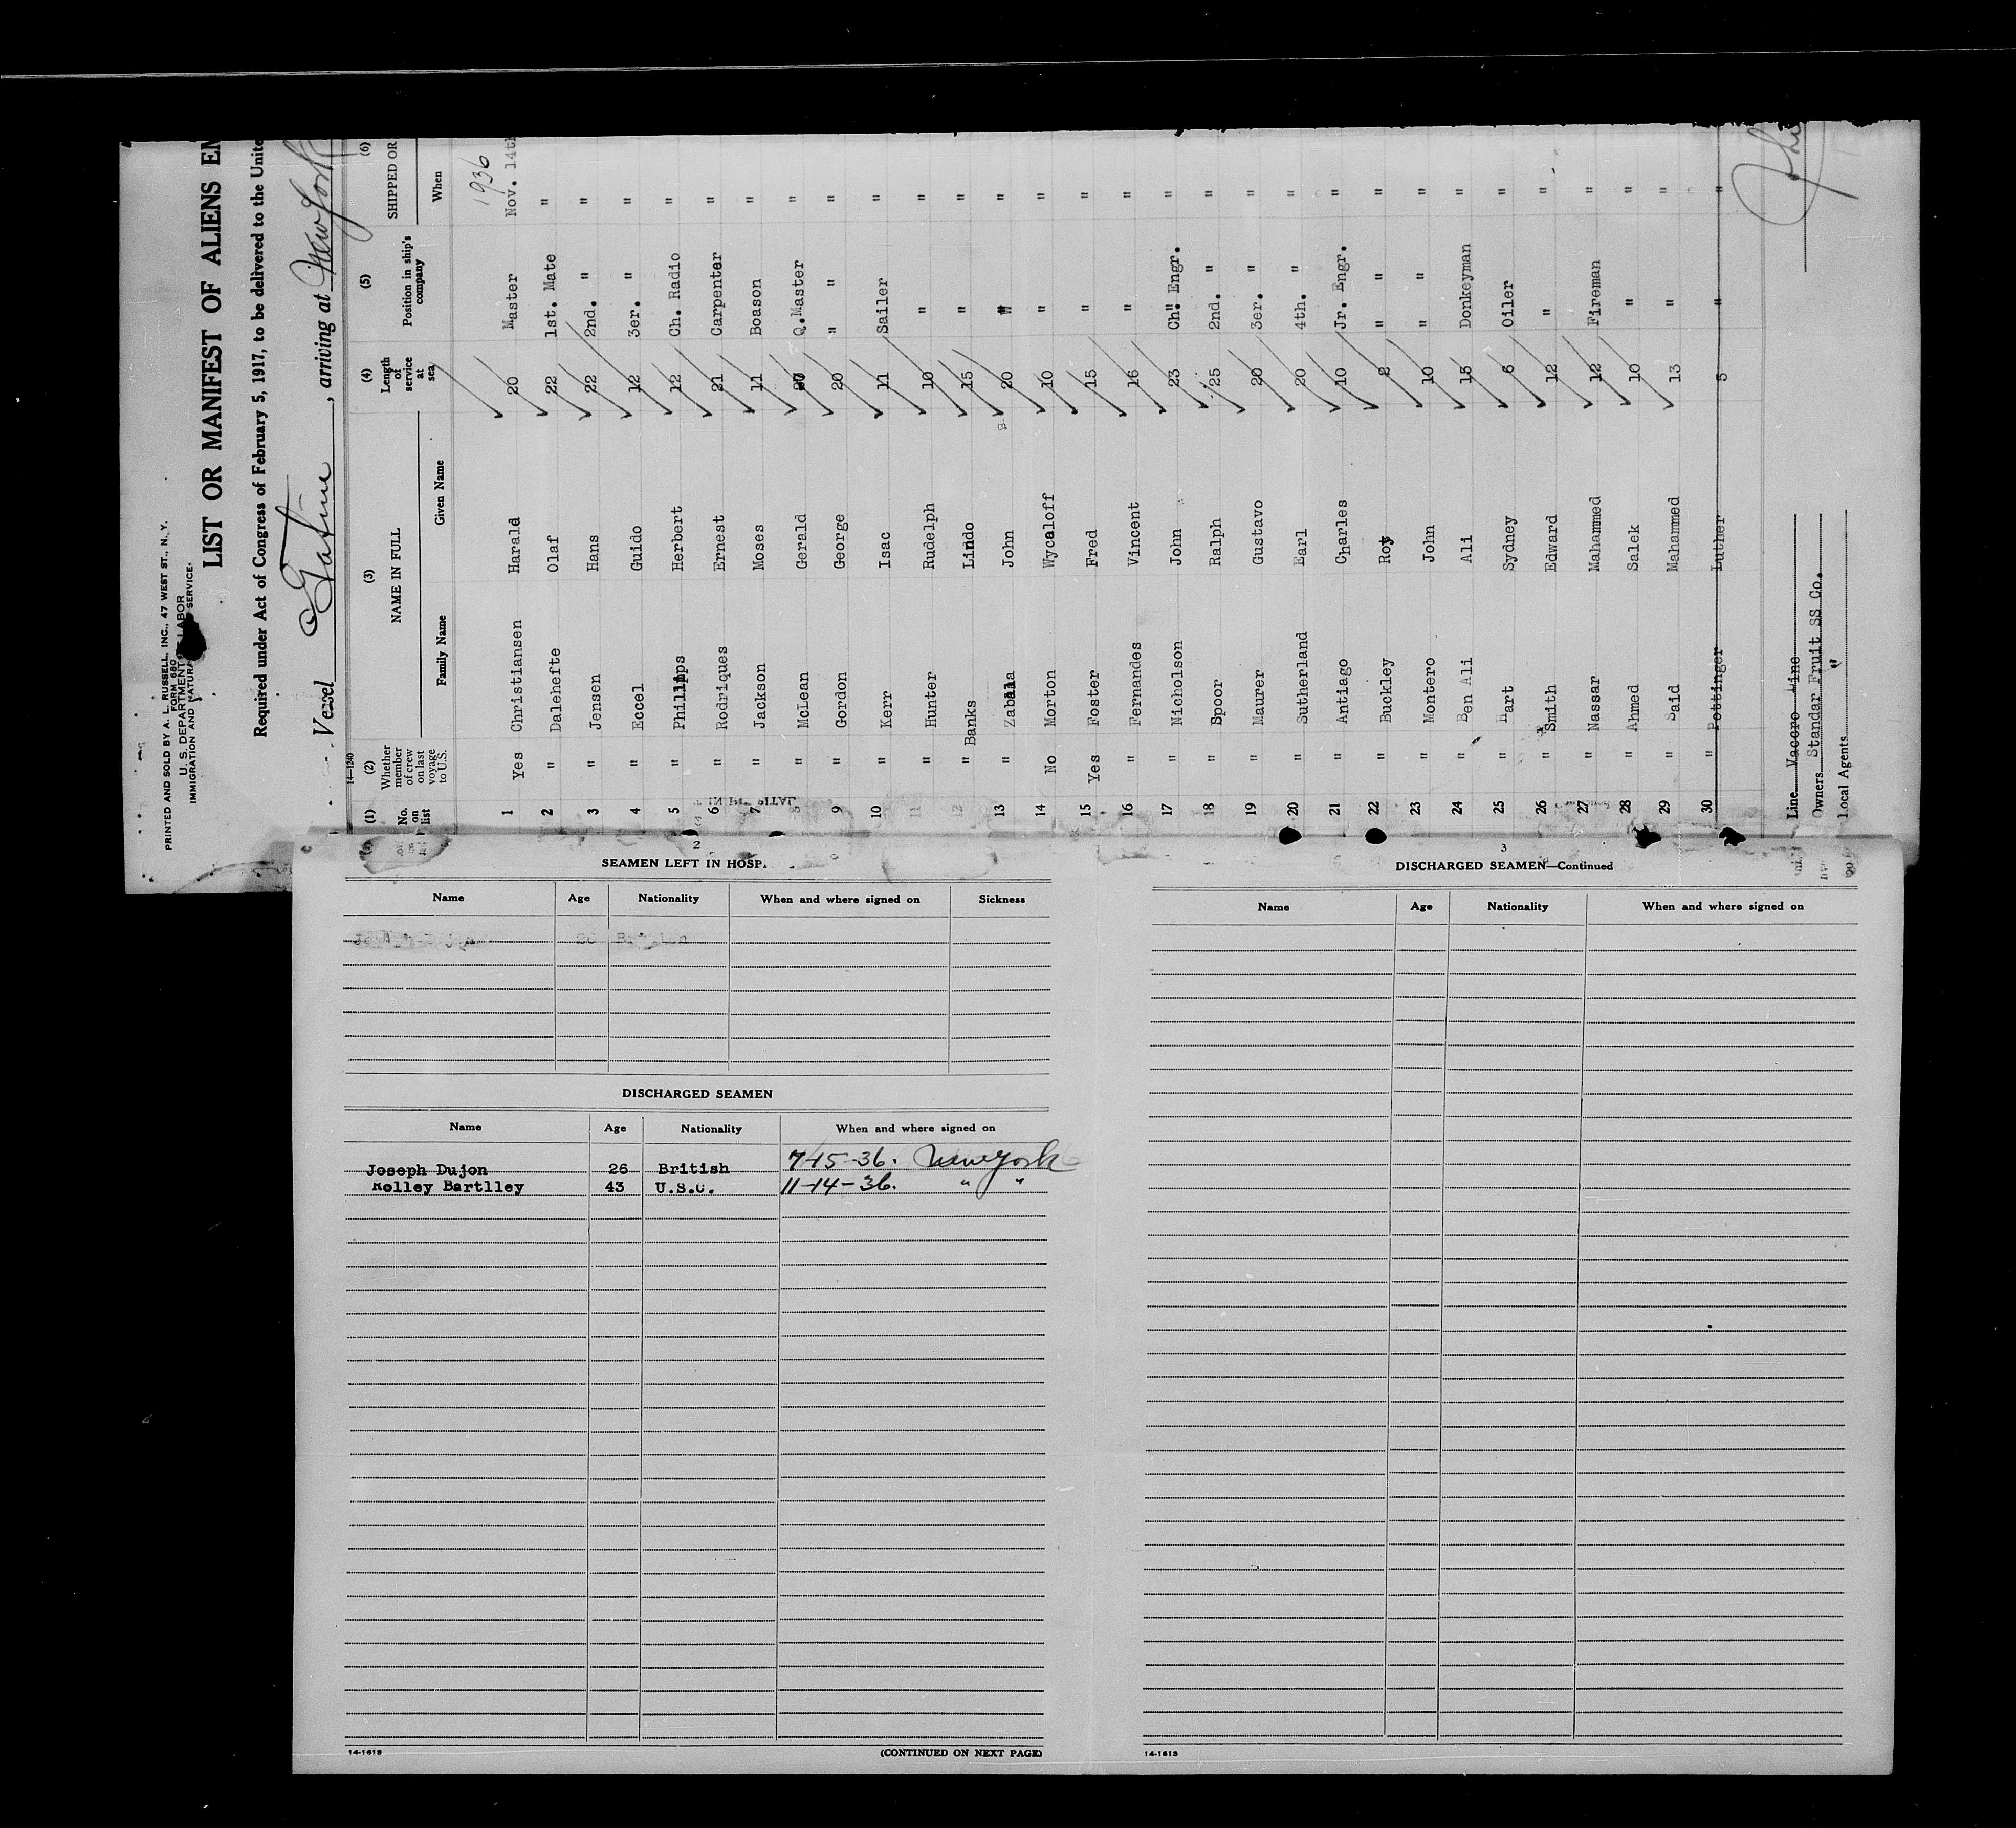 PRINTED AND SOLD BY A. L. RUSSELL, INC., 47 WEST ST., N.Y.
FORM 680
U. S. DEPARTMENT OF LABOR
IMMIGRATION AND NATURA SERVICE
LIST OR MANIFEST OF ALIENS EM
Required under Act of Congress of February 5, 1917, to be delivered to the Unite
Vessel Gatun, arriving at New York
14-1240
(1) (2) (3) (4) (5) (6)
No. on list Whether member of crew on last voyage to U.S. NAME IN FULL Length of service at sea Position in ship's company SHIPPED OR
Family Name Given Name When
1936
1 Yes Christiansen Harald 20 Master Nov. 14th
2 " Dalehefte Olaf 22 1st. Mate "
3 " Jensen Hans 22 2nd. " "
4 " Eccel Guido 12 3er. " "
5 " Philipps Herbert 12 Ch. Radio "
6 " Rodriques Ernest 21 Carpenter "
7 " Jackson Moses 11 Boason "
8 " McLean Gerald Q.Master "
9 " Gordon George 20 " " "
10 " Kerr Isac 11 Sailer "
11 " Hunter Rudelph 10 " "
12 " Banks Lindo 15 " "
13 " Zabala John 20 " "
14 No Morton Wycaloff 10 " "
15 Yes Foster Fred 15 " "
16 " Fernandes Vincent 16 " "
17 " Nicholson John 23 Ch. Engr. "
18 " Spoor Ralph 25 2nd. " "
19 " Maurer Gustavo 20 3er. " "
20 " Sutherland Earl 20 4th. " "
21 " Antiago Charles 10 Jr. Engr. "
22 " Buckley Roy 2 " "
23 " Montero John 10 " "
24 " Ben Ali Ali 15 Donkeyman "
25 " Hart Sydney 6 Oiler "
26 " Smith Edward 12 " "
27 " Nassar Mahammed 12 Fireman "
28 " Ahmed Salek 10 " "
29 " Said Mahammed 13 " "
30 " Pottinger Luther 5 " "
Line Vaccro Line
Owners Standar Fruit SS Co.
Local Agents "
2
SEAMEN LEFT IN HOSP
Name Age Nationality When and where signed on Sickness
DISCHARGED SEAMEN
Name Age Nationality When and where signed on
Joseph Dujon 26 British 7-15-36. New York
Rolley Bartlley 43 U.S.C. 11-14-36. " "
14-1613
(CONTINUED ON NEXT PAGE)
3
DISCHARGED SEAMEN—Continued
Name Age Nationality When and where signed on
14-1613